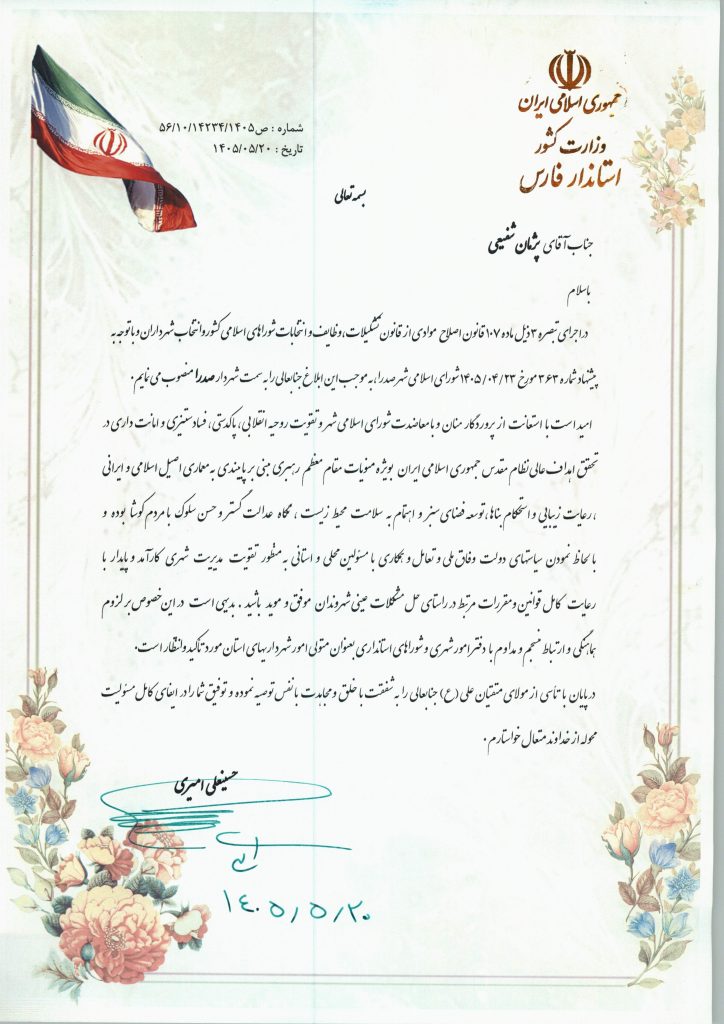 جمهوری اسلامی ایران
وزارت کشور
استاندار فارس
شماره : ص۵۶/۱۰/۱۴۲۳۴/۱۴۰۵
تاریخ : ۱۴۰۵/۰۵/۲۰
بسمه تعالی
جناب آقای پژمان شفیعی
باسلام
در اجرای تبصره ۳ ذیل ماده ۱۰۷ قانون اصلاح موادی از قانون تشکیلات، وظایف و انتخابات شوراهای اسلامی کشور و انتخاب شهرداران و با توجه به
پیشنهاد شماره ۳۶۳ مورخ ۱۴۰۵/۰۴/۲۳ شورای اسلامی شهر صدرا، به موجب این ابلاغ جنابعالی را به سمت شهردار صدرا منصوب می نمایم.
امید است با استعانت از پروردگار منان و با معاضدت شورای اسلامی شهر و تقویت روحیه انقلابی، پاکدستی، فساد ستیزی و امانت داری در
تحقق اهداف عالی نظام مقدس جمهوری اسلامی ایران بویژه منویات مقام معظم رهبری مبنی بر پایبندی به معماری اصیل اسلامی و ایرانی
، رعایت زیبایی و استحکام بناها، توسعه فضای سبز و اهتمام به سلامت محیط زیست ، نگاه عدالت گستر و حسن سلوک با مردم کوشا بوده و
با لحاظ نمودن سیاستهای دولت وفاق ملی و تعامل و همکاری با مسئولین محلی و استانی به منظور تقویت مدیریت شهری کارآمد و پایدار با
رعایت کامل قوانین و مقررات مرتبط در راستای حل مشکلات عینی شهروندان موفق و موید باشید . بدیهی است در این خصوص بر لزوم
هماهنگی و ارتباط منسجم و مداوم با دفتر امور شهری و شوراهای استانداری بعنوان متولی امور شهرداریهای استان مورد تأکید و انتظار است.
در پایان با تاسی از مولای متقیان علی (ع) جنابعالی را به شفقت با خلق و مجاهدت با نفس توصیه نموده و توفیق شما را در ایفای کامل مسئولیت
محوله از خداوند متعال خواستارم .
حسینعلی امیری
۱۴۰۵/۵/۲۰